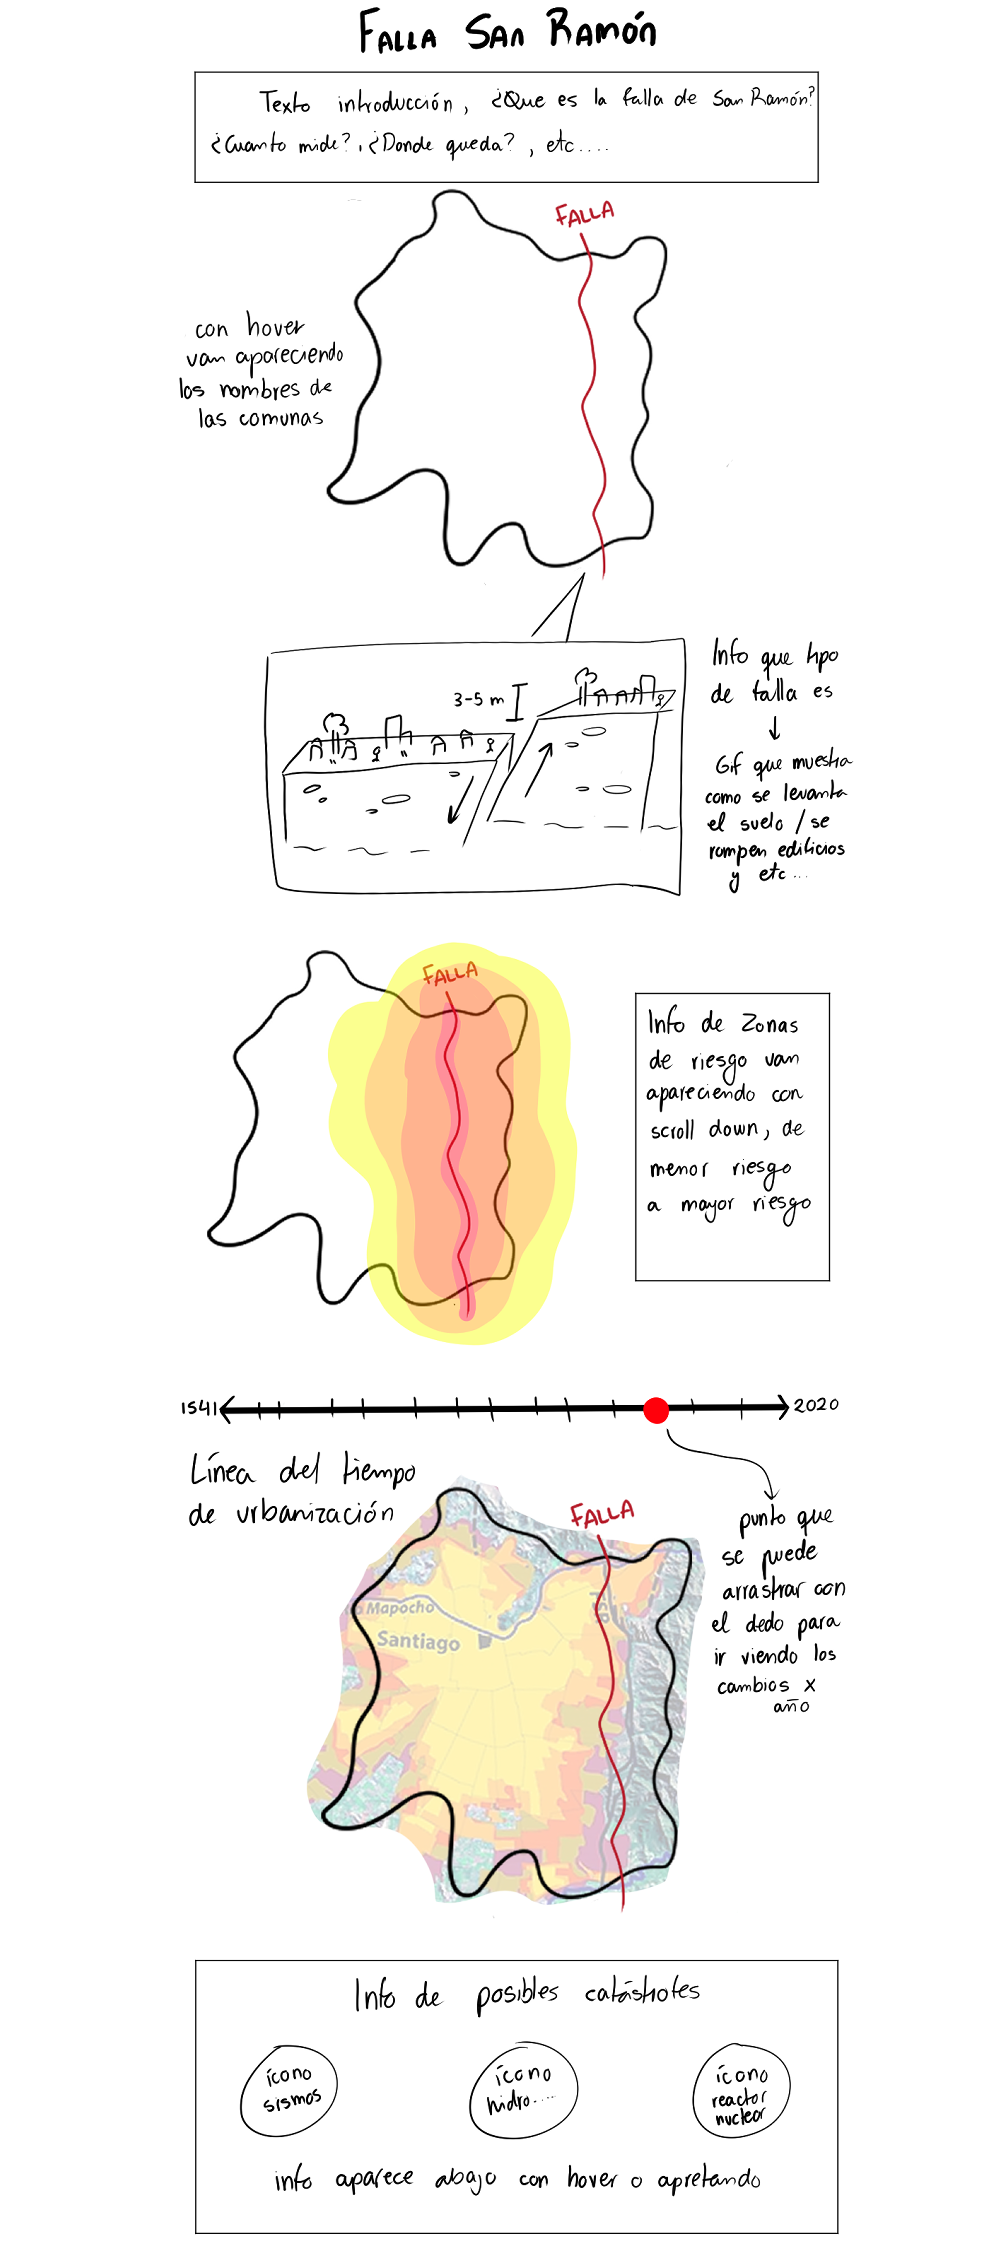 FALLA SAN RAMÓN
Texto introducción, ¿Que es la falla de San Ramón?
¿Cuanto mide?, ¿Donde queda?, etc....
FALLA
con hover
van apareciendo
los nombres de
las comunas
3-5 m
Info que tipo
de falla es
Gif que muestra
como se levanta
el suelo / se
rompen edificios
y etc...
FALLA
Info de Zonas
de riesgo van
apareciendo con
scroll down, de
menor riesgo
a mayor riesgo
1541
2020
Línea del tiempo
de urbanización
FALLA
punto que
se puede
arrastrar con
el dedo para
ir viendo los
cambios x
año
Mapocho
Santiago
Info de posibles catástrofes
ícono
sismos
ícono
hidro....
ícono
reactor
nuclear
info aparece abajo con hover o apretando